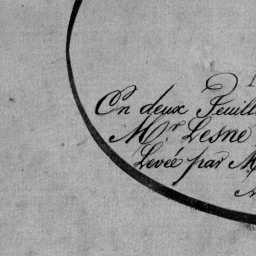 En deux Feuill
Mr Lesne
Levée par M